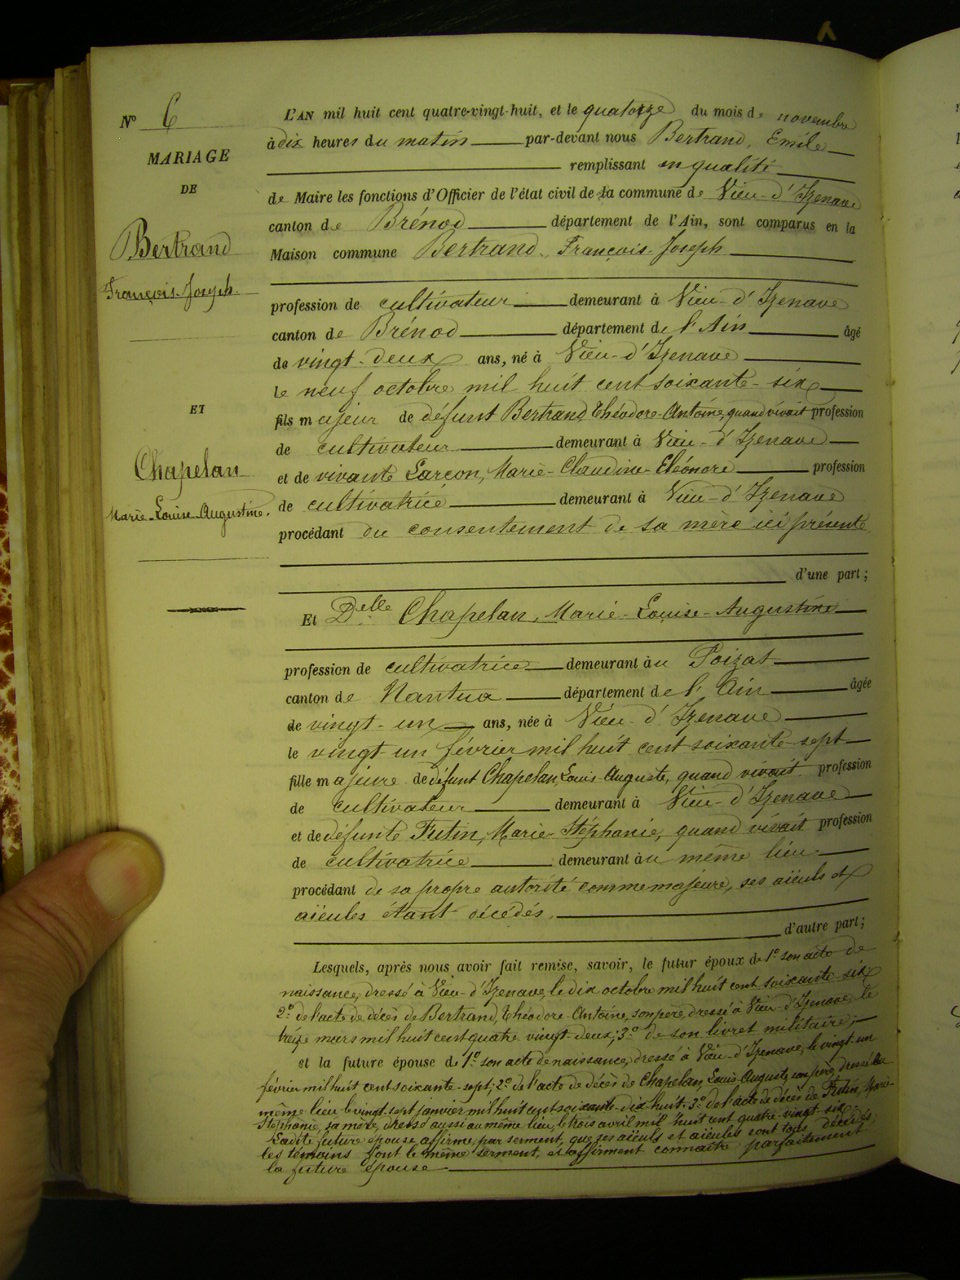 N° 6
MARIAGE
DE
Bertrand
François-Joseph
ET
Chapelan
Marie-Louise-Augustine.
L'AN mil huit cent quatre-vingt-huit, et le quatorze du mois de novembre
à dix heures du matin par-devant nous Bertrand, Emile
remplissant en qualité
de Maire les fonctions d'Officier de l'état civil de la commune de Vieu-d'Izenave
canton de Brénod département de l'Ain, sont comparus en la
Maison commune Bertrand François-Joseph
profession de cultivateur demeurant à Vieu-d'Izenave
canton de Brénod département de l'Ain âgé
de vingt-deux ans, né à Vieu-d'Izenave
le neuf octobre mil huit cent soixante-six
fils majeur de défunt Bertrand Théodore-Antoine, quand vivait profession
de cultivateur demeurant à Vieu-d'Izenave
et de vivante Larçon, Marie-Claudine-Eléonore profession
de cultivatrice demeurant à Vieu-d'Izenave
procédant du consentement de sa mère ici présente
d'une part;
Et Delle Chapelan, Marie-Louise-Augustine
profession de cultivatrice demeurant au Poizat
canton de Nantua département de l'Ain âgée
de vingt-un ans, née à Vieu-d'Izenave
le vingt un février mil huit cent soixante-sept
fille majeure de défunt Chapelan Louis-Auguste, quand vivait profession
de cultivateur demeurant à Vieu-d'Izenave
et de défunte Futin, Marie-Stéphanie, quand vivait profession
de cultivatrice demeurant au même lieu
procédant de sa propre autorité comme majeure, ses aïeuls et
aïeules étant décédés.
d'autre part;
Lesquels, après nous avoir fait remise, savoir, le futur époux de 1° son acte de
naissance, dressé à Vieu-d'Izenave, le dix octobre mil huit cent soixante six
2° de l'acte de décès de Bertrand, Théodore-Antoine, son père dressé à Vieu-d'Izenave, le
treize mars mil huit cent quatre vingt-deux; 3° de son livret militaire;
et la future épouse de 1° son acte de naissance, dressé à Vieu-d'Izenave, le vingt-un
février mil huit cent soixante-sept; 2° de l'acte de décès de Chapelan Louis-Auguste, son père, dressé au
même lieu le vingt-sept janvier mil huit cent soixante-dix huit; 3° de l'acte de décès de Futin, Marie-
Stéphanie, sa mère, dressé aussi au même lieu, le trois avril mil huit cent quatre-vingt-six.
Ladite future épouse affirme par serment, que ses aïeuls et aïeules sont tous décédés;
les témoins font le même serment, et affirment connaître parfaitement
la future épouse